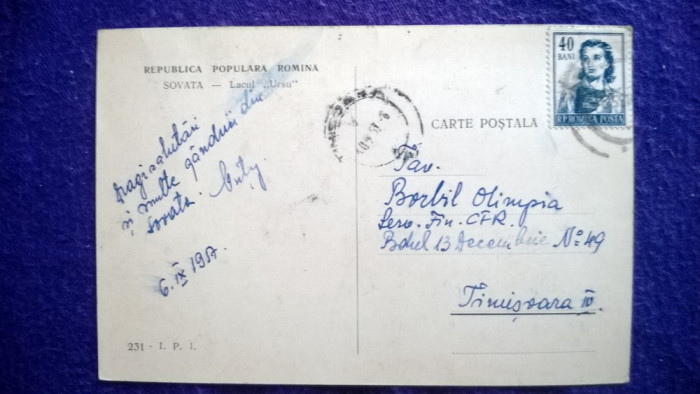 REPUBLICA POPULARA ROMINA
SOVATA — Lacul „Ursu"
Dragi salutări
și multe gânduri din
Sovata.
6. IX 1957.
231 - I. P. I.
CARTE POȘTALA
40
BANI
R.P.ROMINA POSTA
TIMISOARA
Tov.
Borbil Olimpia
Serv. Fin. CFR.
Bdul 13 Decembrie No 49
Timișoara IV.